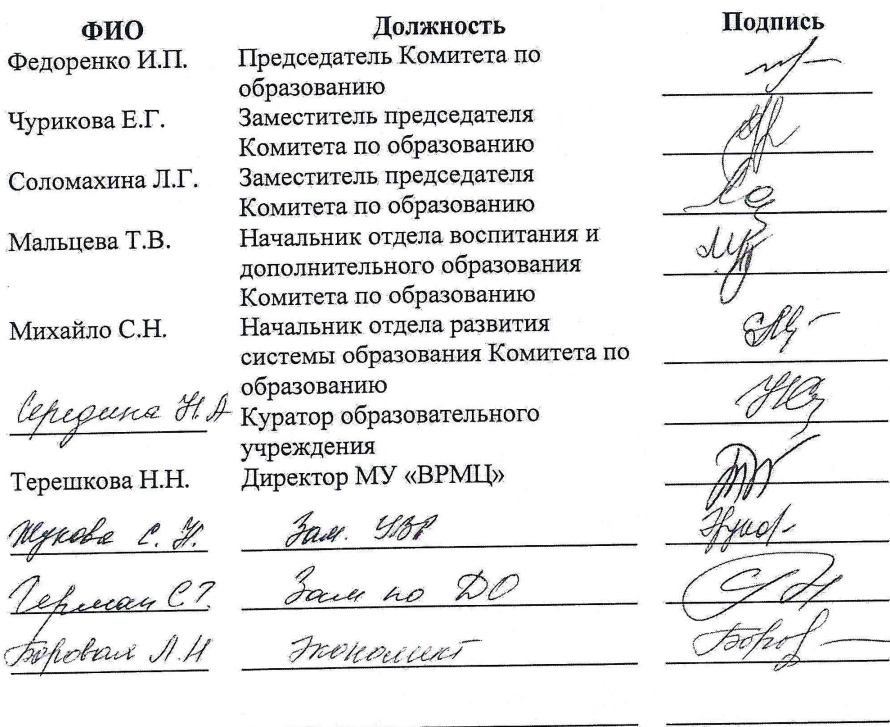 ФИО Должность Подпись
Федоренко И.П. Председатель Комитета по
образованию
Чурикова Е.Г. Заместитель председателя
Комитета по образованию
Соломахина Л.Г. Заместитель председателя
Комитета по образованию
Мальцева Т.В. Начальник отдела воспитания и
дополнительного образования
Комитета по образованию
Михайло С.Н. Начальник отдела развития
системы образования Комитета по
образованию
Середина Н.А Куратор образовательного
учреждения
Терешкова Н.Н. Директор МУ «ВРМЦ»
Жукова С. Н. Зам. УВР
Герман С.Г. Зам по ДО
Боровая Л.Н Экономист